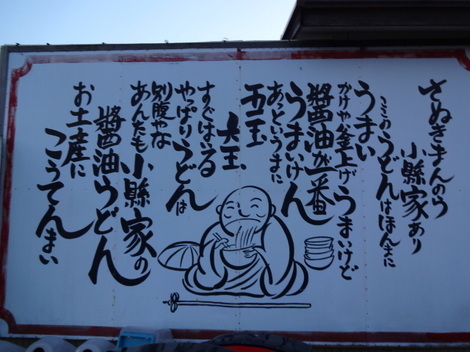 さぬきまんのう
小縣家あり
ここのうどんはほんまに
うまい
かけや釜上げうまいけど
醬油が一番
うまいけん
あというまに
五玉
六玉
すぐはいる
やっぱりうどんは
別腹やな
あんたも小縣家の
醬油うどん
お土産に
こうてんまい